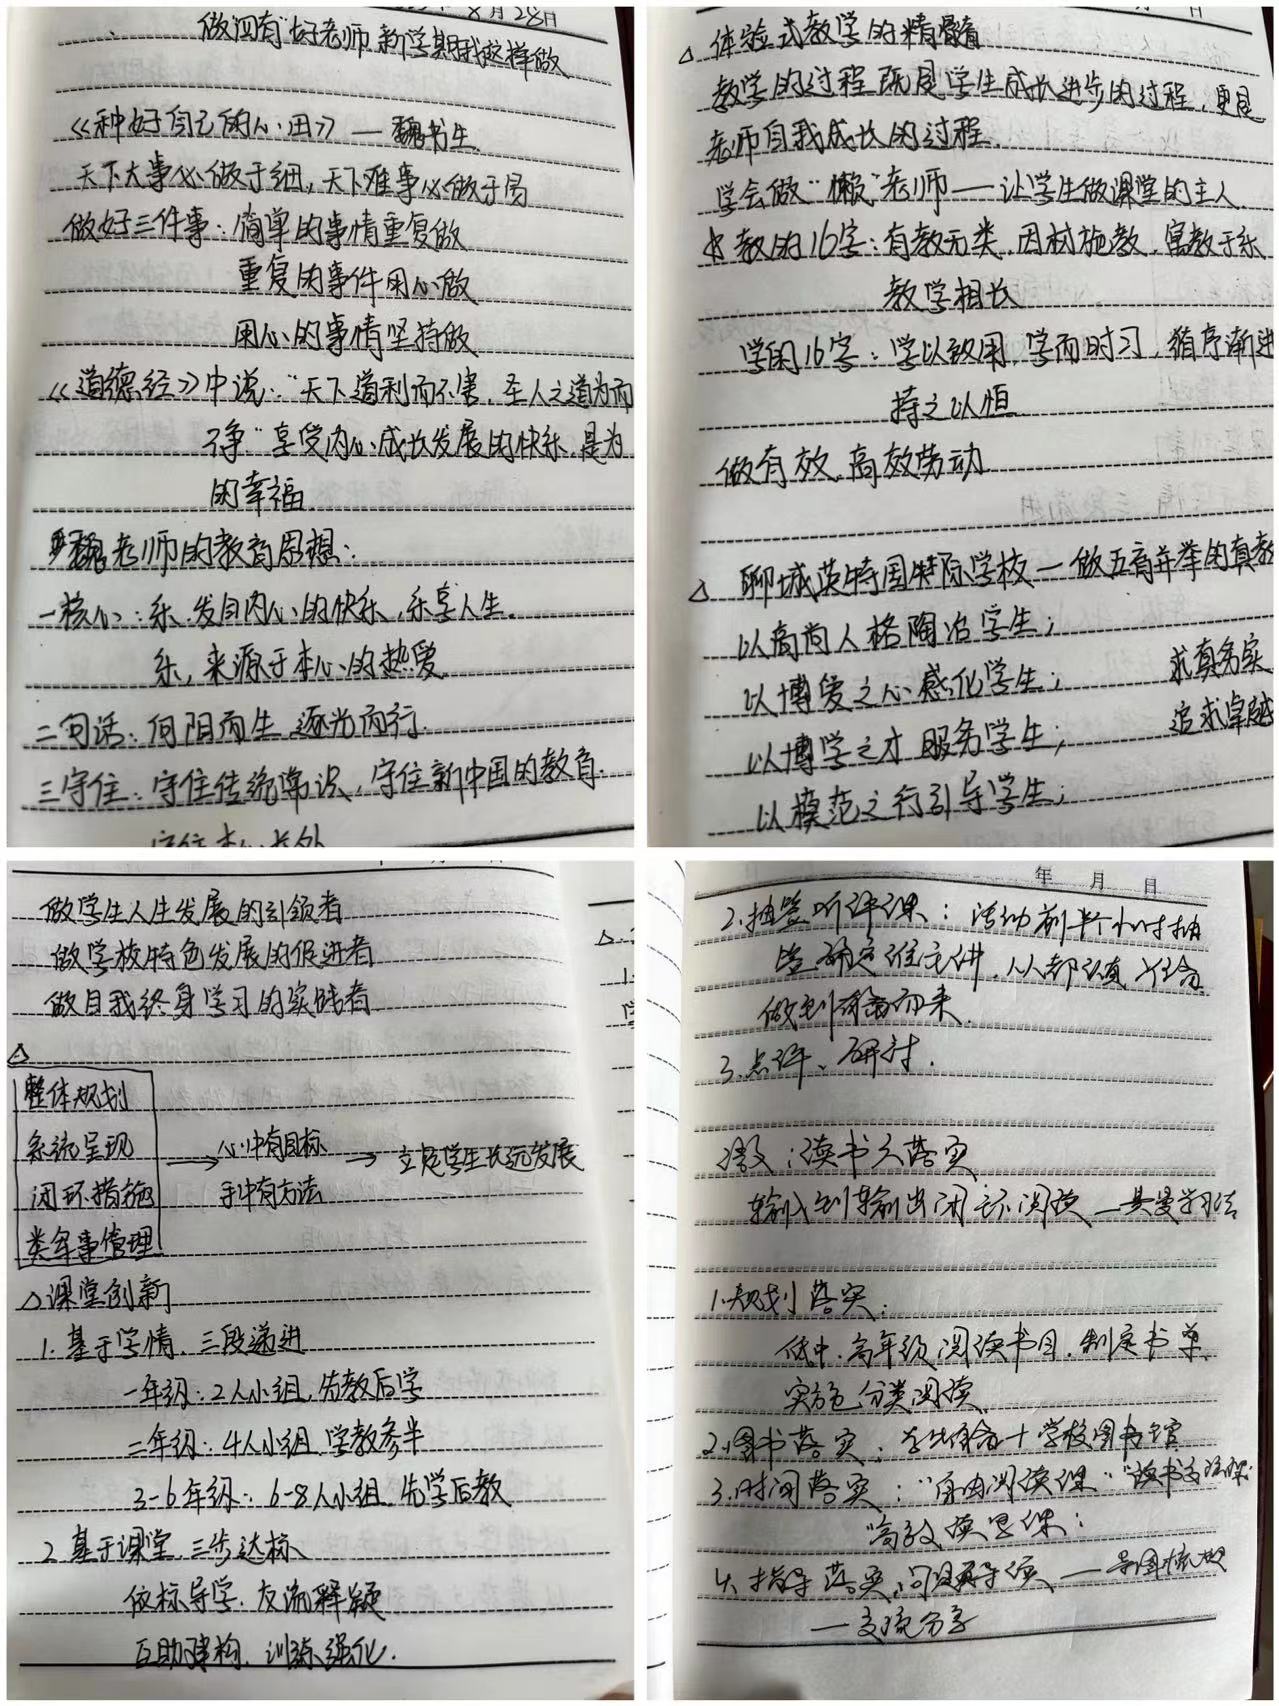 8月28日
做"四有"好老师 新学期我这样做
《种好自己的心田》— 魏书生
天下大事必做于细，天下难事必做于易
做好三件事：简单的事情重复做
重复的事件用心做
用心的事情坚持做
《道德经》中说："天下道利而不害，圣人之道为而
不争" 享受内心成长发展的快乐，是为
的幸福
魏老师的教育思想：
一核心：乐，发自内心的快乐，乐享人生。
乐，来源于本心的热爱
二句话：向阳而生 逐光而行.
三守住：守住传统常识，守住新中国的教育.
守住本心
日
△ 体验式教学的精髓
教学的过程既是学生成长进步的过程，更是
老师自我成长的过程.
学会做"懒"老师——让学生做课堂的主人
教的16字：有教无类，因材施教，寓教于乐
教学相长
学的16字：学以致用，学而时习，循序渐进
持之以恒
做有效、高效劳动
△ 聊城英特国际学校—做五育并举的真教
以高尚人格陶冶学生；
以博爱之心感化学生； 求真务实
以博学之才服务学生； 追求卓越
以模范之行引导学生；
做学生人生发展的引领者
做学校特色发展的促进者
做自我终身学习的实践者
△
整体规划
系统呈现 → 心中有目标 → 立足学生长远发展
闭环措施 手中有方法
类年事管理
△课堂创新
1. 基于学情，三段递进
一年级：2人小组，先教后学
二年级：4人小组，学教参半
3-6年级：6-8人小组，先学后教
2. 基于课堂，三步达标
依标导学，交流释疑
互助建构，训练强化.
年 月 日
2. 抽签听评课：活动前半个小时抽
签确定谁主讲，人人都认真准备
做到有备而来.
3. 点评、研讨.
读书六落实
输入到输出闭环阅读—费曼学习法
1. 规划落实：
低中、高年级阅读书目，制定书单
实施分类阅读
2. 图书落实：学生自备+学校图书馆
3. 时间落实："自由阅读课" "读书
高效读思课：
4. 指导落实，问题导读—导图梳理
—交流分享